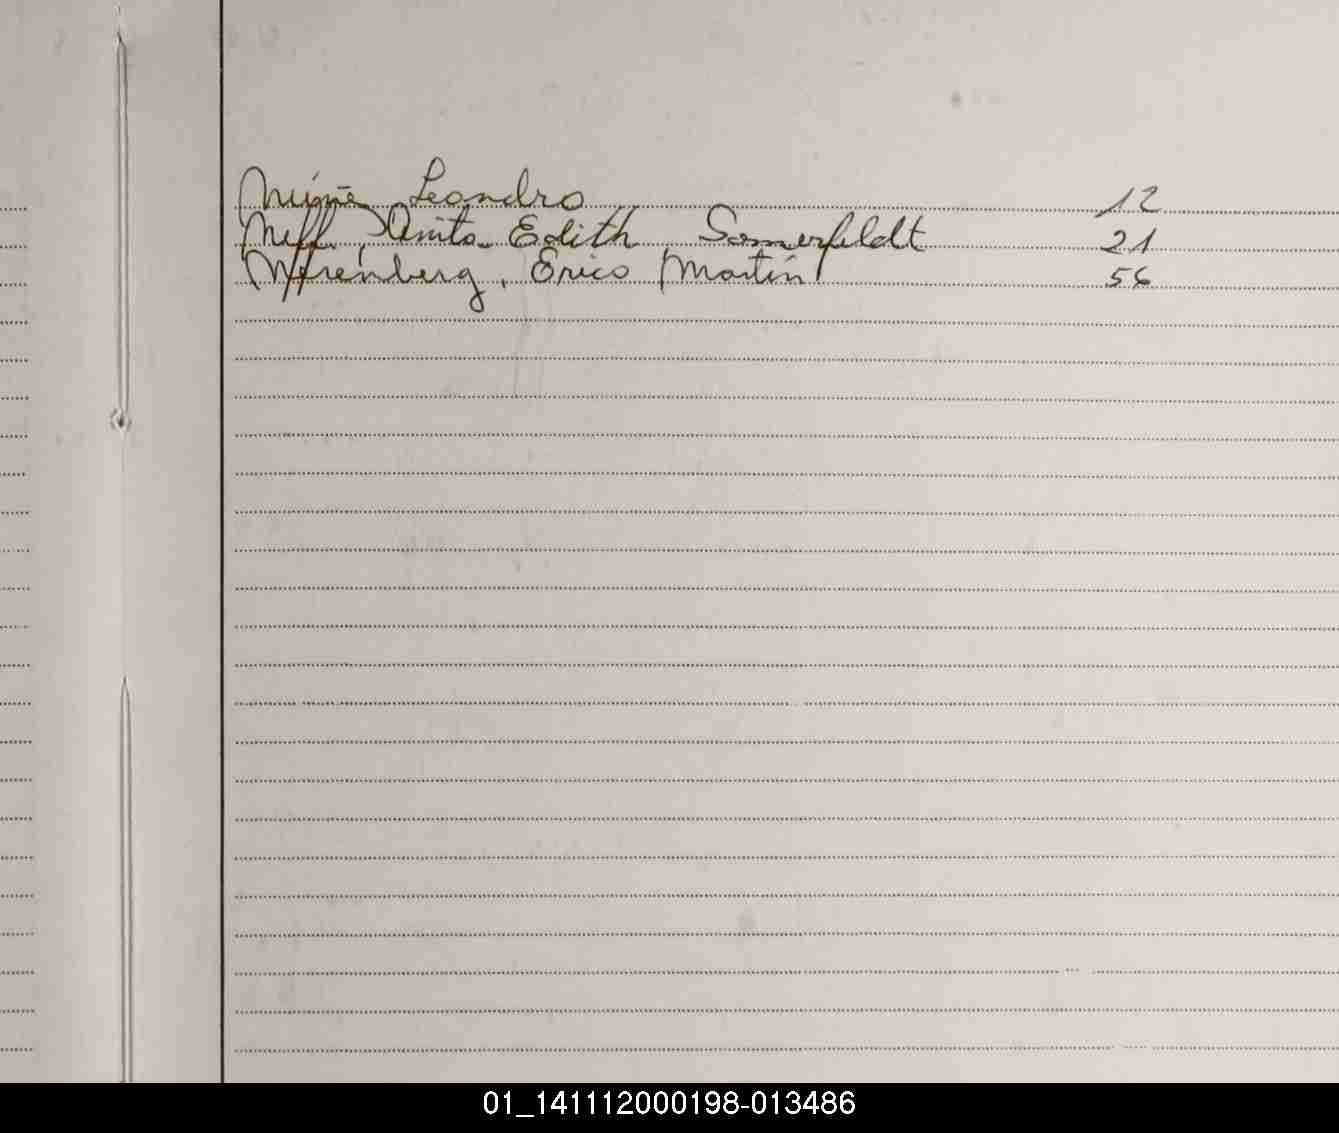 Leandro 12
Neff, Anita Edith Somerfeldt 21
Erico Martin 56
01_141112000198-013486